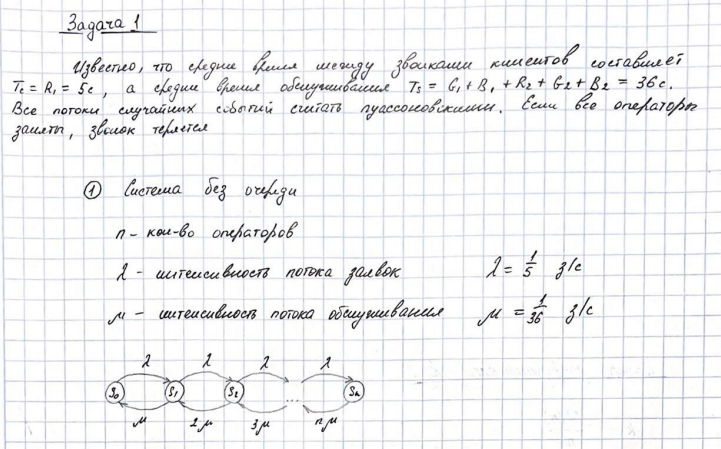 Задача 1
Известно, что средние время между звонками клиентов составляет
Tc = R1 = 5с, а средние время обслуживания Ts = G1 + B1 + R2 + G2 + B2 = 36с.
Все потоки случайных событий считать пуассоновскими. Если все операторы
заняты, звонок теряется
① Система без очереди
n - кол-во операторов
λ - интенсивность потока заявок λ = 1/5 з/с
μ - интенсивность потока обслуживания μ = 1/36 з/с
λ λ λ λ
S0 S1 S2 ... Sn
μ 2μ 3μ nμ